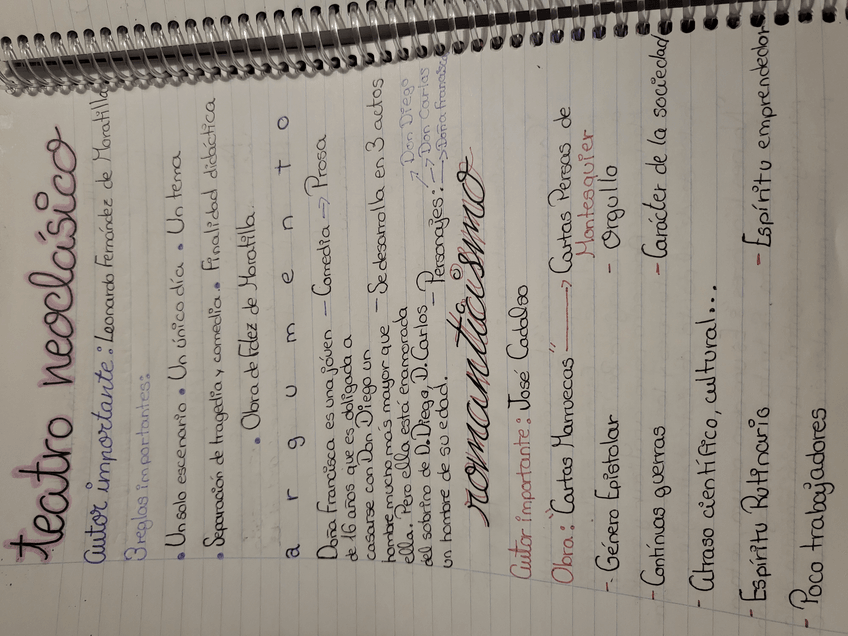 teatro neoclásico
Autor importante: Leonardo Fernández de Moratilla
3 reglas importantes:
• Un solo escenario • Un único día • Un tema
• Separación de tragedia y comedia • Finalidad didáctica
• Obra de Fdez de Moratilla
argumento
Doña Francisca es una jóven
de 16 años que es obligada a
casarse con Don Diego un
hombre mucho más mayor que
ella. Pero ella está enamorada
del sobrino de D. Diego, D. Carlos
un hombre de su edad.
- Comedia → Prosa
- Se desarrolla en 3 actos
- Personajes: → Don Diego
→ Don Carlos
→ Doña Francisca
romanticismo
Autor importante: José Cadalso
Obra: "Cartas Marruecas" → Cartas Persas de
Montesquier
- Género Epistolar - Orgullo
- Contínuas guerras - Carácter de la sociedad
- Atraso científico, cultural...
- Espíritu Rutinario - Espíritu emprendedor
- Poco trabajadores